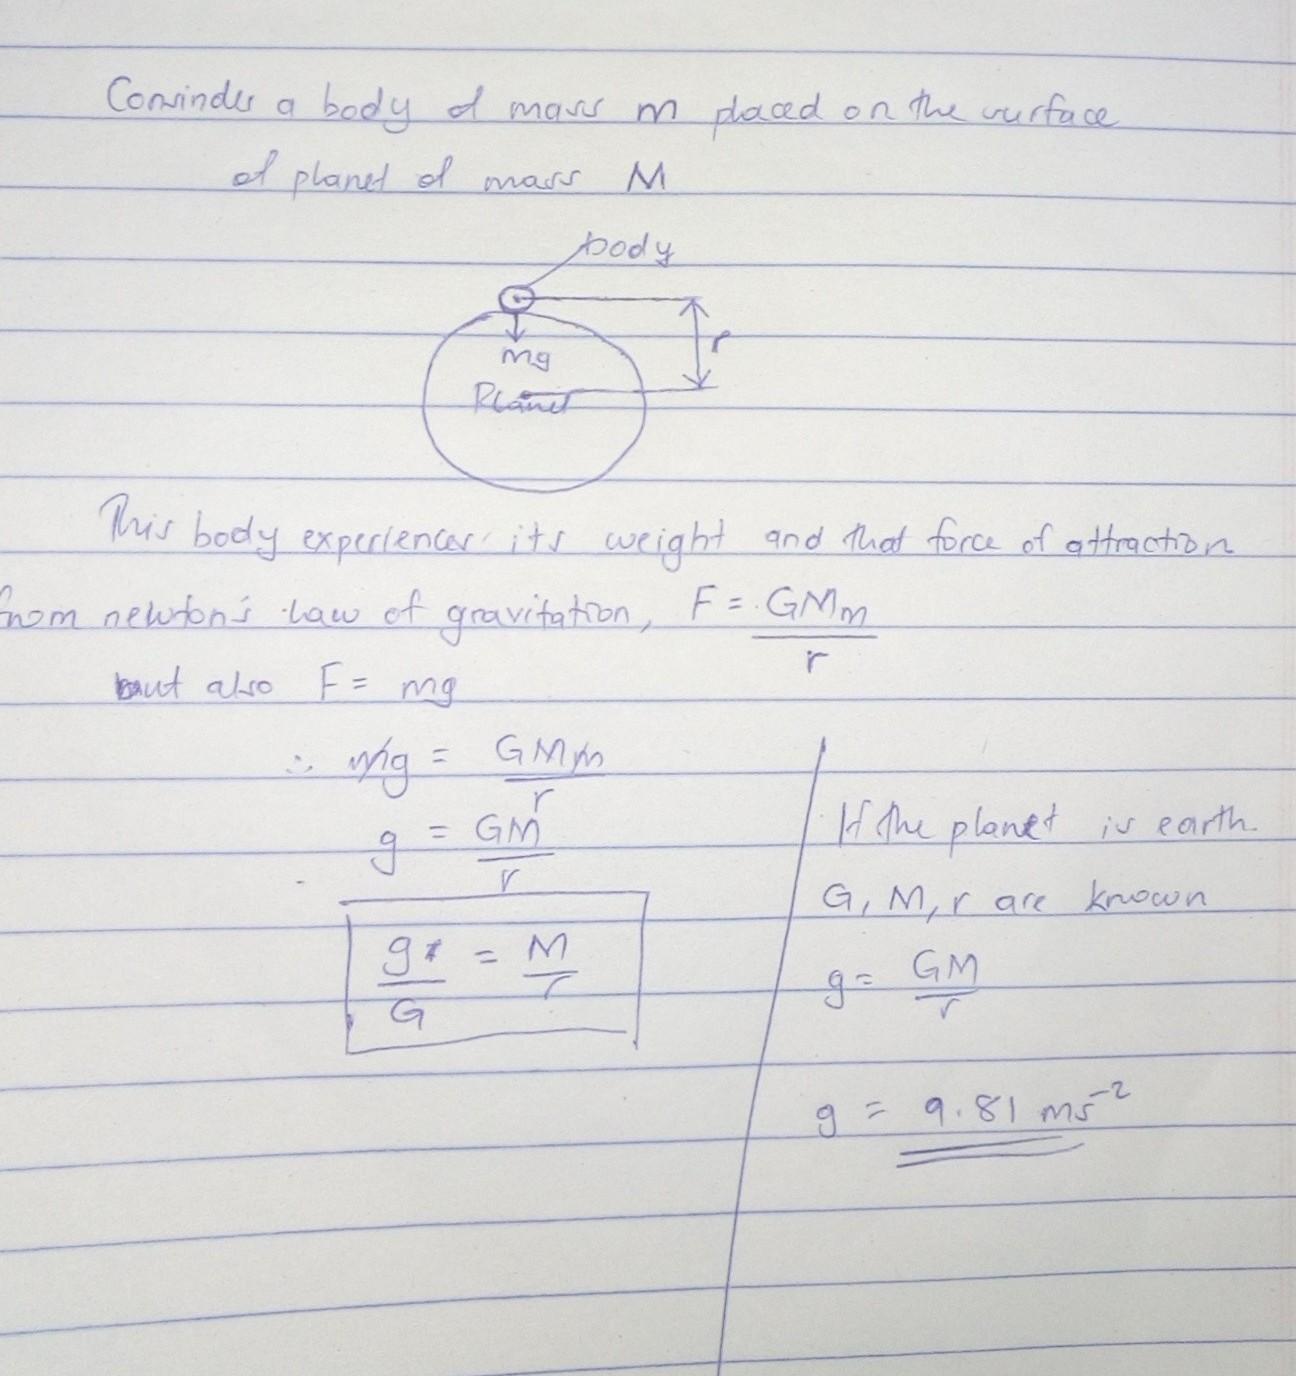 Consinder a body of mass m placed on the surface
of planet of mass M
body
r
mg
Planet
This body experiences its weight and that force of attraction
from newton's law of gravitation, F = GMm/r
but also F = mg
∴ mg = GMm/r
g = GM/r
g/G = M/r
If the planet is earth.
G, M, r are known
g = GM/r
g = 9.81 ms⁻²